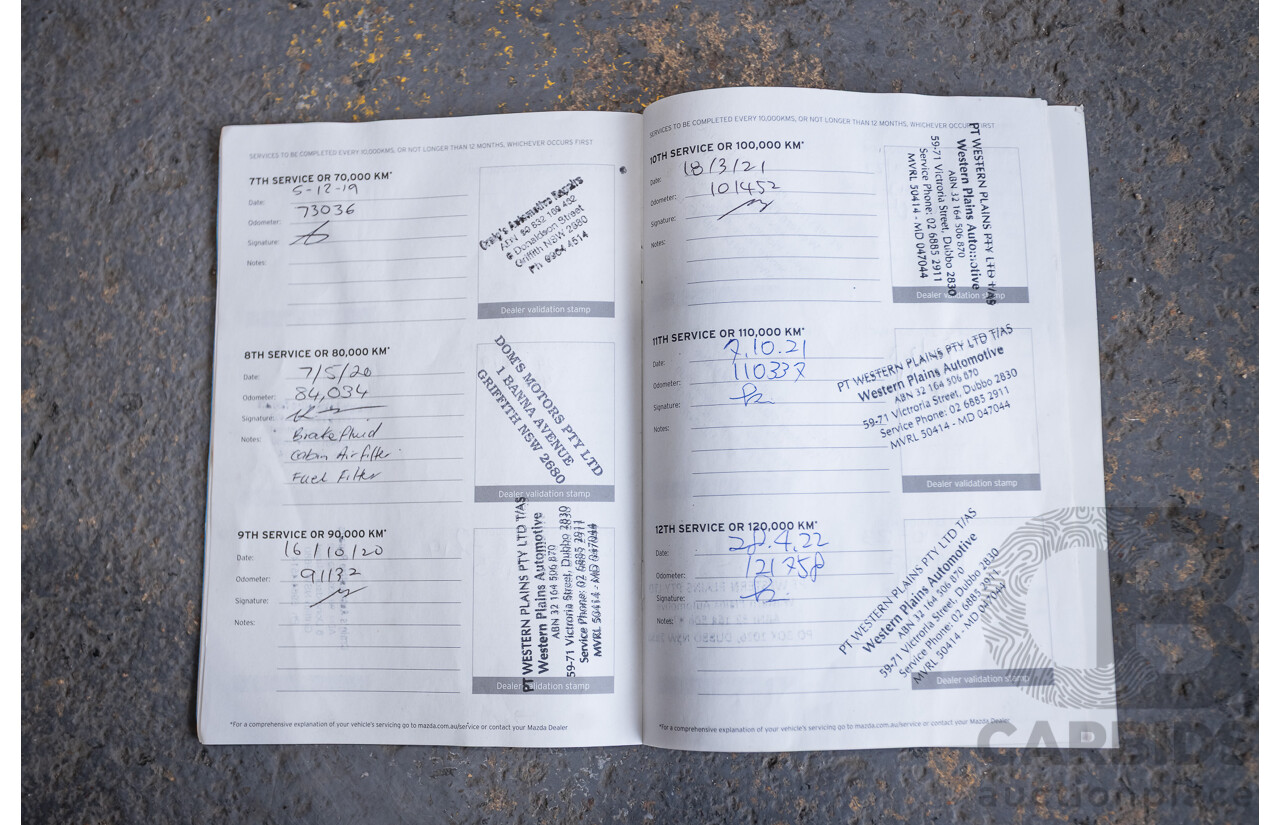 SERVICES TO BE COMPLETED EVERY 10,000KMS, OR NOT LONGER THAN 12 MONTHS, WHICHEVER OCCURS FIRST
7TH SERVICE OR 70,000 KM*
Date: 5-12-19
Odometer: 73036
Signature:
Notes:
Craig's Automotive Repairs
ABN 80 832 169 402
Donaldson Street
Griffith NSW 2680
Ph 6964 4514
Dealer validation stamp
8TH SERVICE OR 80,000 KM*
Date: 7/5/20
Odometer: 84,034
Signature:
Notes: Brake fluid
Cabin Air filter
Fuel Filter
DOM'S MOTORS PTY LTD
1 BANNA AVENUE
GRIFFITH NSW 2680
Dealer validation stamp
9TH SERVICE OR 90,000 KM*
Date: 16/10/20
Odometer: 91132
Signature:
Notes:
PT WESTERN PLAINS PTY LTD T/AS
Western Plains Automotive
ABN 32 164 506 870
59-71 Victroria Street, Dubbo 2830
Service Phone: 02 6885 2911
MVRL 50414 - MD 047044
Dealer validation stamp
*For a comprehensive explanation of your vehicle's servicing go to mazda.com.au/service or contact your Mazda Dealer.
SERVICES TO BE COMPLETED EVERY 10,000KMS, OR NOT LONGER THAN 12 MONTHS, WHICHEVER OCCURS FIRST
10TH SERVICE OR 100,000 KM*
Date: 18/3/21
Odometer: 101452
Signature:
Notes:
PT WESTERN PLAINS PTY LTD T/AS
Western Plains Automotive
ABN 32 164 506 870
59-71 Victroria Street, Dubbo 2830
Service Phone: 02 6885 2911
MVRL 50414 - MD 047044
Dealer validation stamp
11TH SERVICE OR 110,000 KM*
Date: 7.10.21
Odometer: 110337
Signature:
Notes:
PT WESTERN PLAINS PTY LTD T/AS
Western Plains Automotive
ABN 32 164 506 870
59-71 Victroria Street, Dubbo 2830
Service Phone: 02 6885 2911
MVRL 50414 - MD 047044
Dealer validation stamp
12TH SERVICE OR 120,000 KM*
Date: 28.4.22
Odometer: 121758
Signature:
Notes:
PT WESTERN PLAINS PTY LTD T/AS
Western Plains Automotive
ABN 32 164 506 870
59-71 Victroria Street, Dubbo 2830
Service Phone: 02 6885 2911
MVRL 50414 - MD 047044
Dealer validation stamp
*For a comprehensive explanation of your vehicle's servicing go to mazda.com.au/service or contact your Mazda Dealer.
CARBIDS
auctionplace